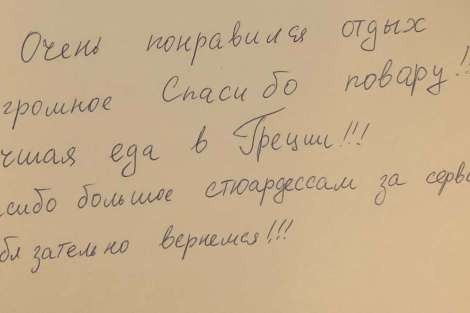 Очень понравился отдых
громное Спасибо повару!!
чшая еда в Греции!!!
асибо большое стюардессам за серв
бязательно вернемся!!!